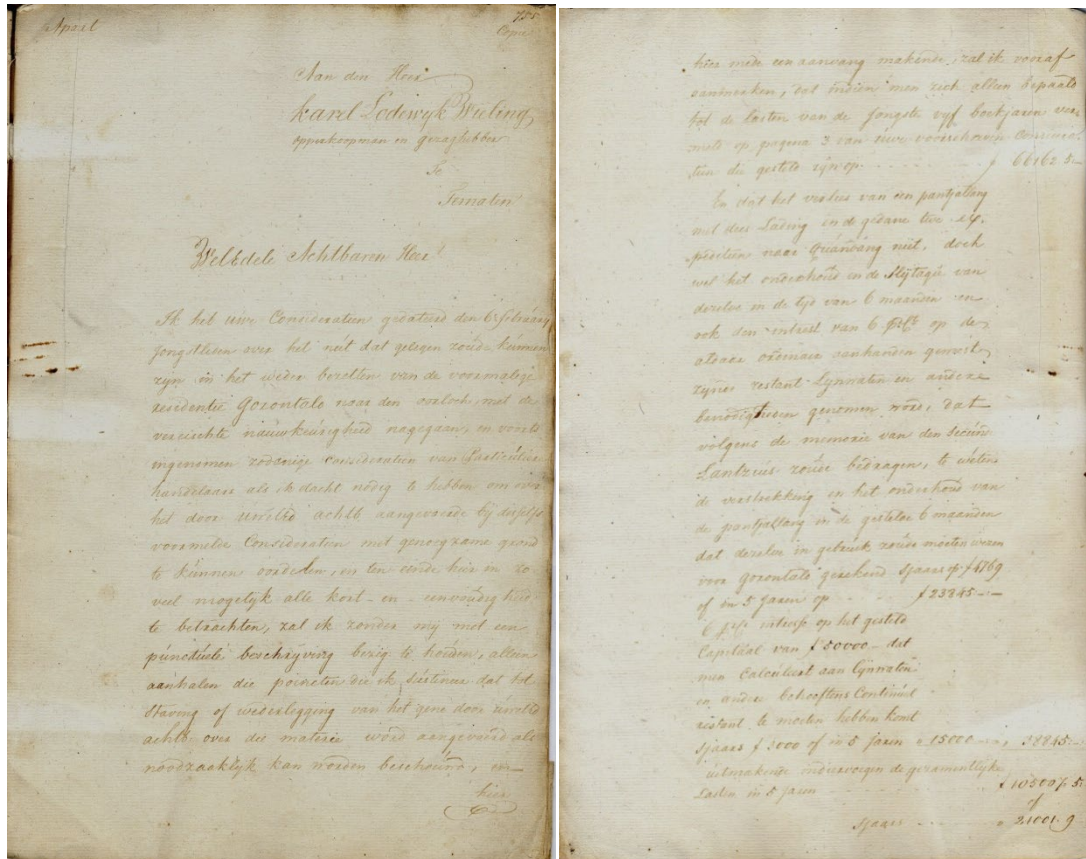 April
755
Copie
Aan den Heer
Karel Lodewyk Wieling
opperkoopman en gezaghebber
te
Ternaten
WelEdele Achtbaren Heer!
Ik heb uwe Consideratien gedateerd den 6 februarij
jongstleden over het nut dat gelegen zoude kunnen
zyn in het weder bezetten van de voormalige
residentie Gorontalo naar den oorloch, met de
vereischte nauwkeurigheid nagegaan, en voorts
ingenomen zodanige consideratien van Particuliere
handelaars als ik dacht nodig te hebben om over
het door uwelEd achtb aangevoerde bij deselfs
voormelde Consideratien met genoegzame grond
te kunnen oordelen, en ten einde hier in zo
veel mogelyk alle kort- en eenvoudigheid
te betrachten, zal ik zonder my met een
punctuele beschryving bezig te houden, alleen
aanhalen die poincten die ik sustineere dat tot
Staving of wederlegging van het gene door uwelEd
achtb over die materie word aangevoerd als
noodzaaklyk kan worden beschouwd, en
hier
hier mede een aanvang makende, zal ik vooraf
aanmerken, dat indien men zich alleen bepaald
tot de lasten van de jongste vyf boekjaren ver-
meld op pagina 3 van uwe voorschreven Considera-
tien die gesteld zyn op f 66162 5
En dat het verlies van een pantjallang
met dies Lading in de gedane twe ex-
peditien naar niet, doch
wel het onderhoud en de Slytagie van
dezelve in de tyd van 6 maanden en
ook den intrest van 6 pCt op de
aldaar aanhanden geweest
zynde restant Lynwaten en andere
benodigtheden genomen word, dat
volgens de memorie van den
Lantzius zoude bedragen, te weten
de verstrekking en het onderhoud van
de pantjallang in de gestelde 6 maanden
dat dezelve in gebruik zoude moeten wezen
voor gorontalo gerekend Sjaars op f 4769
of in 5 Jaren op f 23845.-
6 pCt intrest op het gesteld
Capitaal van f 50000 dat
men Calculeert aan Lynwaten
en andere behoeftens Continueel
restant te moeten hebben komt
Sjaars f 3000 of in 5 Jaren " 15000 " 38845.-
uitmakende de gezamentlyke
Lasten in 5 jaren f 105007 5
of
Sjaars " 21001. 9